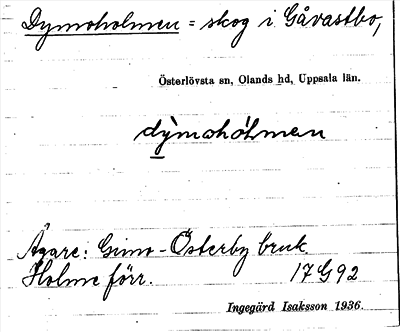 Dymoholmen = skog i Gåvastbo,
Österlövsta sn, Olands hd, Uppsala län.
dỳmohólmen
Ägare: Gimo-Österby bruk.
Holme förr. 17 G 92
Ingegärd Isaksson 1936.